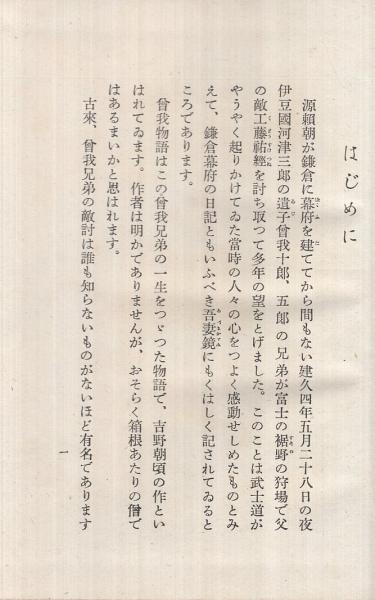 はじめに
源賴朝が鎌倉に幕府を建ててから間もない建久四年五月二十八日の夜
伊豆國河津三郎の遺子曾我十郎、五郎の兄弟が富士の裾野の狩場で父
の敵工藤祐經を討ち取つて多年の望をとげました。このことは武士道が
やうやく起りかけてゐた當時の人々の心をつよく感動せしめたものとみ
えて、鎌倉幕府の日記ともいふべき吾妻鏡にもくはしく記されてゐると
ころであります。
曾我物語はこの曾我兄弟の一生をつゞつた物語で、吉野朝頃の作とい
はれてゐます。作者は明かでありませんが、おそらく箱根あたりの僧で
はあるまいかと思はれます。
古來、曾我兄弟の敵討は誰も知らないものがないほど有名であります
一